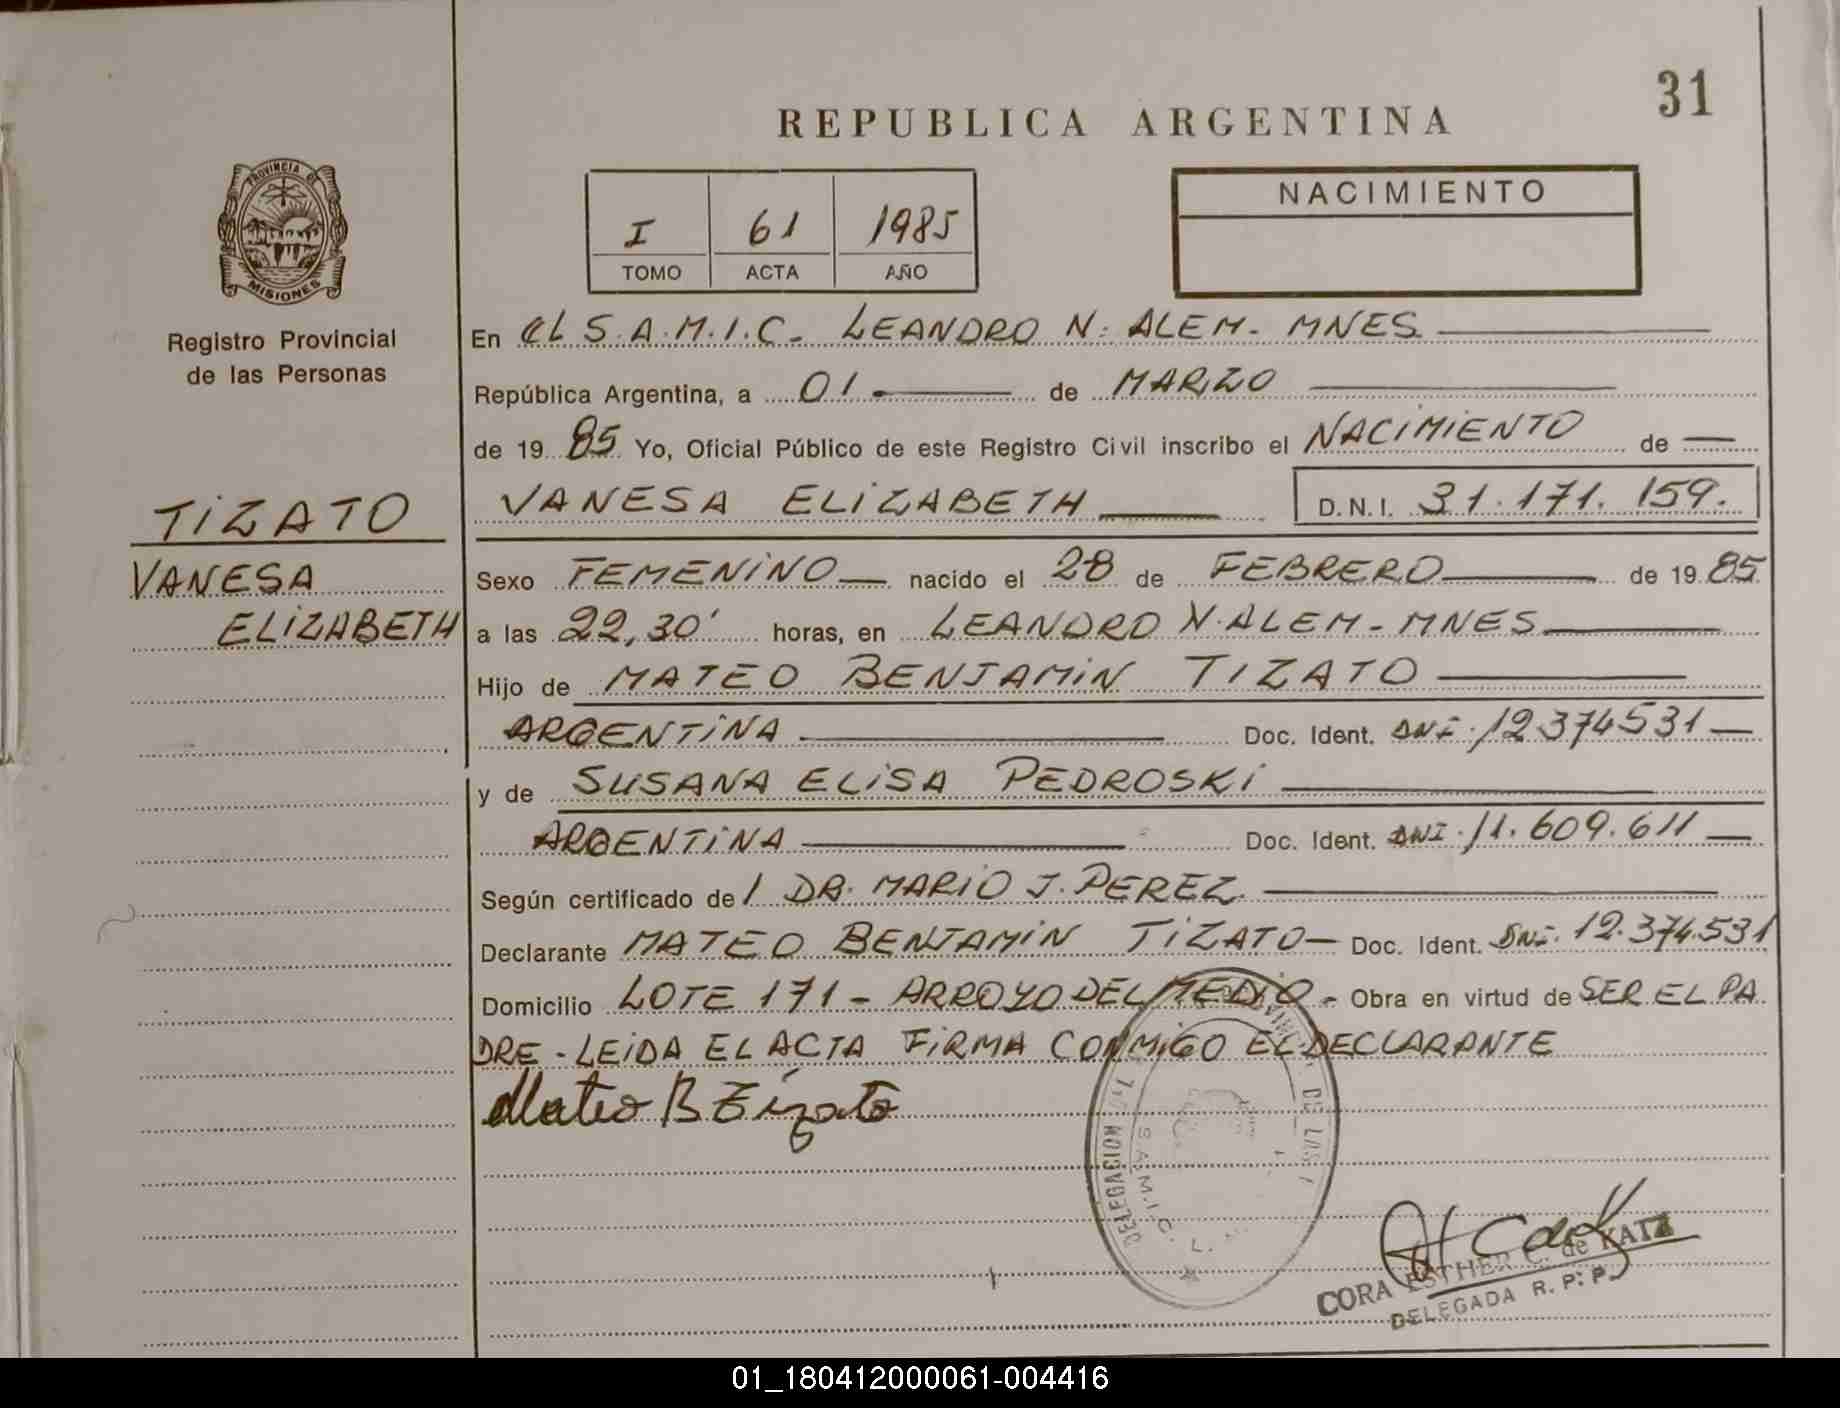 31
REPUBLICA ARGENTINA
PROVINCIA DE
MISIONES
Registro Provincial
de las Personas
I 61 1985
TOMO ACTA AÑO
NACIMIENTO
En el S.A.M.I.C. LEANDRO N. ALEM - MNES
República Argentina, a 01 de MARZO
de 19 85 Yo, Oficial Público de este Registro Civil inscribo el NACIMIENTO de
VANESA ELIZABETH D.N.I. 31.171.159.
TIZATO
VANESA
ELIZABETH
Sexo FEMENINO nacido el 28 de FEBRERO de 19 85
a las 22,30' horas, en LEANDRO N. ALEM - MNES
Hijo de MATEO BENJAMIN TIZATO
ARGENTINA Doc. Ident. DNI. 12374531
y de SUSANA ELISA PEDROSKI
ARGENTINA Doc. Ident. DNI. 11.609.611
Según certificado de / DR. MARIO J. PEREZ
Declarante MATEO BENJAMIN TIZATO - Doc. Ident. DNI. 12.374.531
Domicilio LOTE 171 - ARROYO DEL MEDIO - Obra en virtud de SER EL PA
DRE - LEIDA EL ACTA FIRMA CONMIGO EL DECLARANTE
Mateo B Tizato
DELEGACION
DE LAS
S.A.M.I.C. L.
CORA ESTHER C. de KATZ
DELEGADA R. P. P.
01_180412000061-004416